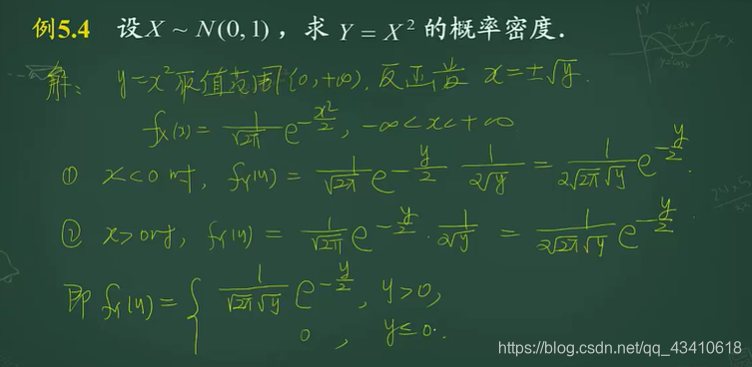 例5.4 设X ~ N(0,1)，求 Y = X² 的概率密度.
解: y=x²取值范围(0,+∞), 反函数 x=±√y.
fX(x) = 1/√2π e^(-x²/2), -∞<x<+∞
① x<0时, fY(y) = 1/√2π e^(-y/2) 1/2√y = 1/2√2π√y e^(-y/2).
② x>0时, fY(y) = 1/√2π e^(-y/2) · 1/2√y = 1/2√2π√y e^(-y/2)
即 fY(y) = { 1/√2π√y e^(-y/2), y>0,
0, y≤0.
https://blog.csdn.net/qq_43410618